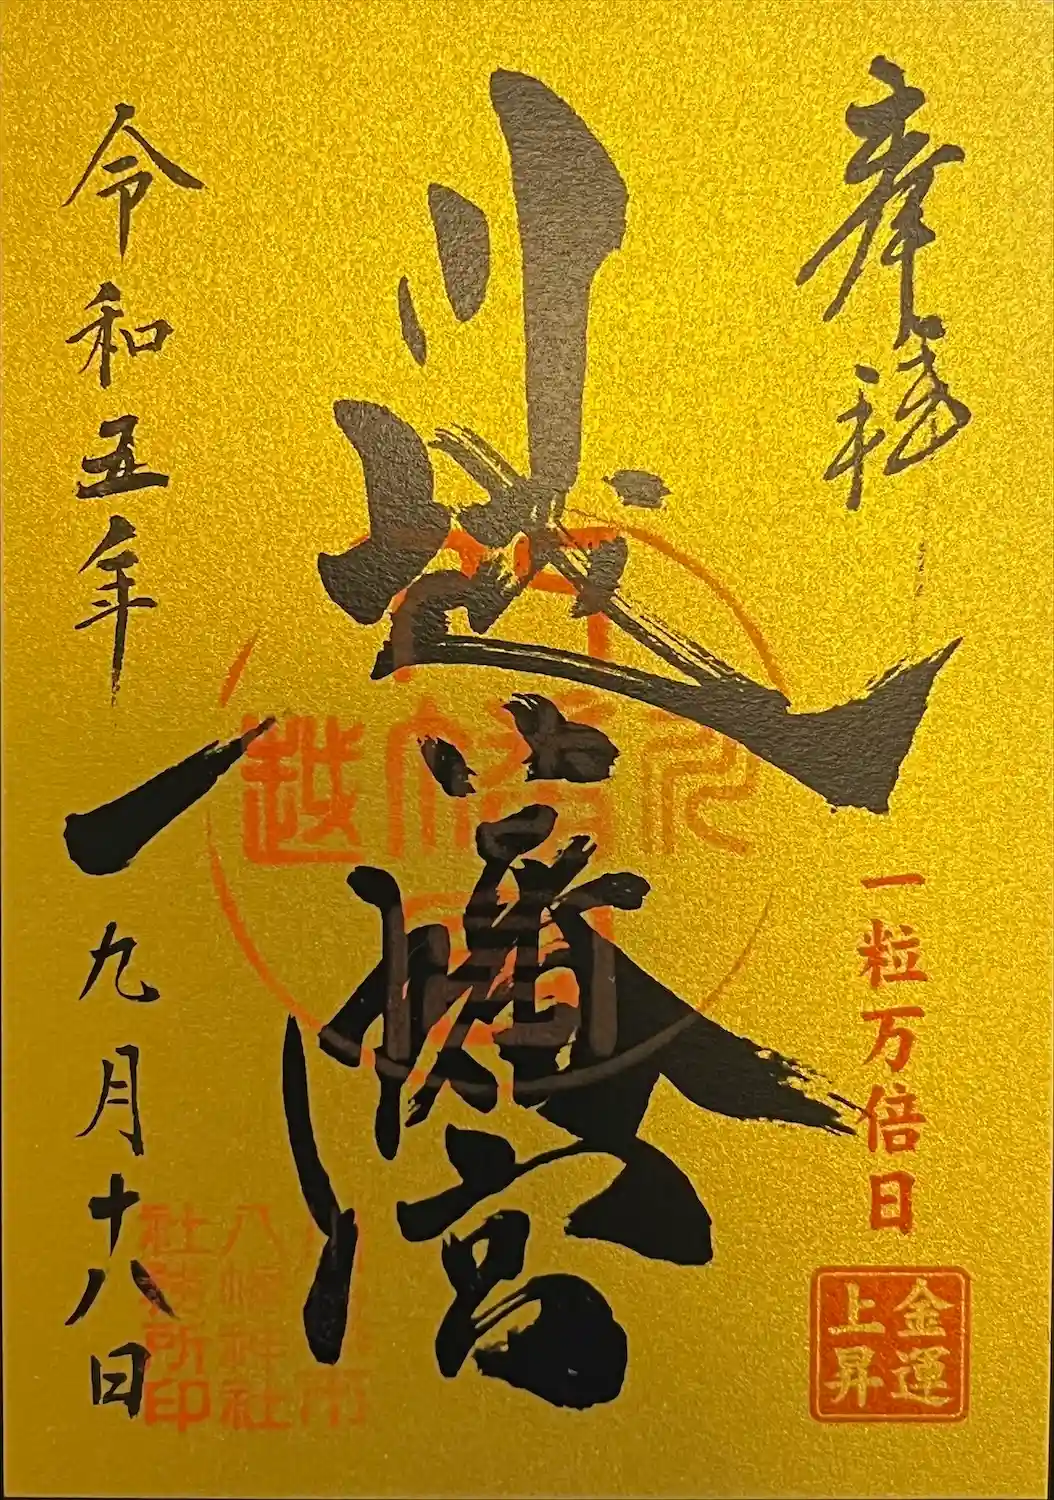 奉拝
一粒万倍日
金運
上昇
川越
八幡宮
令和五年
九月十八日
八幡神社
社務所印